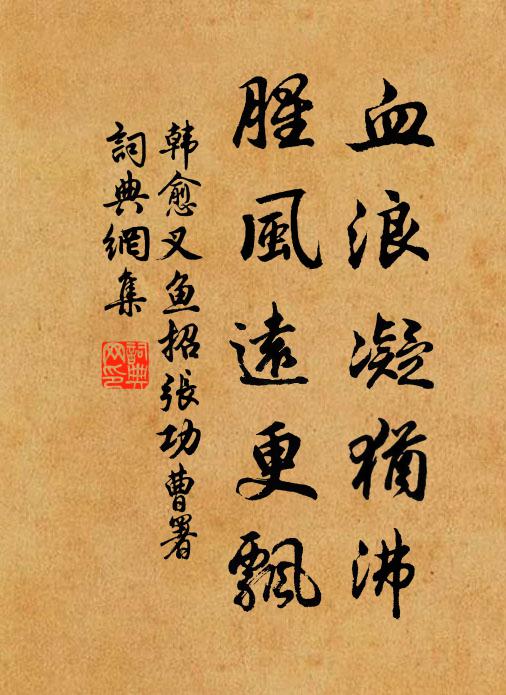 血浪凝猶沸
腥風遠更飄
韓愈叉魚招張功曹署
詞典網集
詞典网印